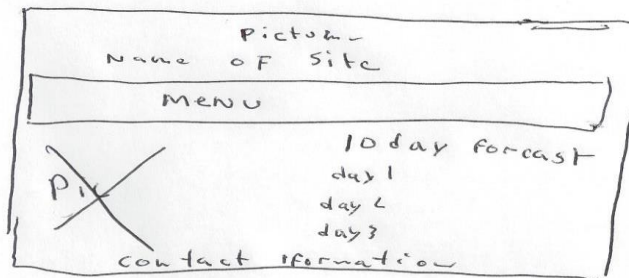 Picture
Name OF Site
MENU
10 day forcast
Pic
day 1
day 2
day 3
contact Iformation